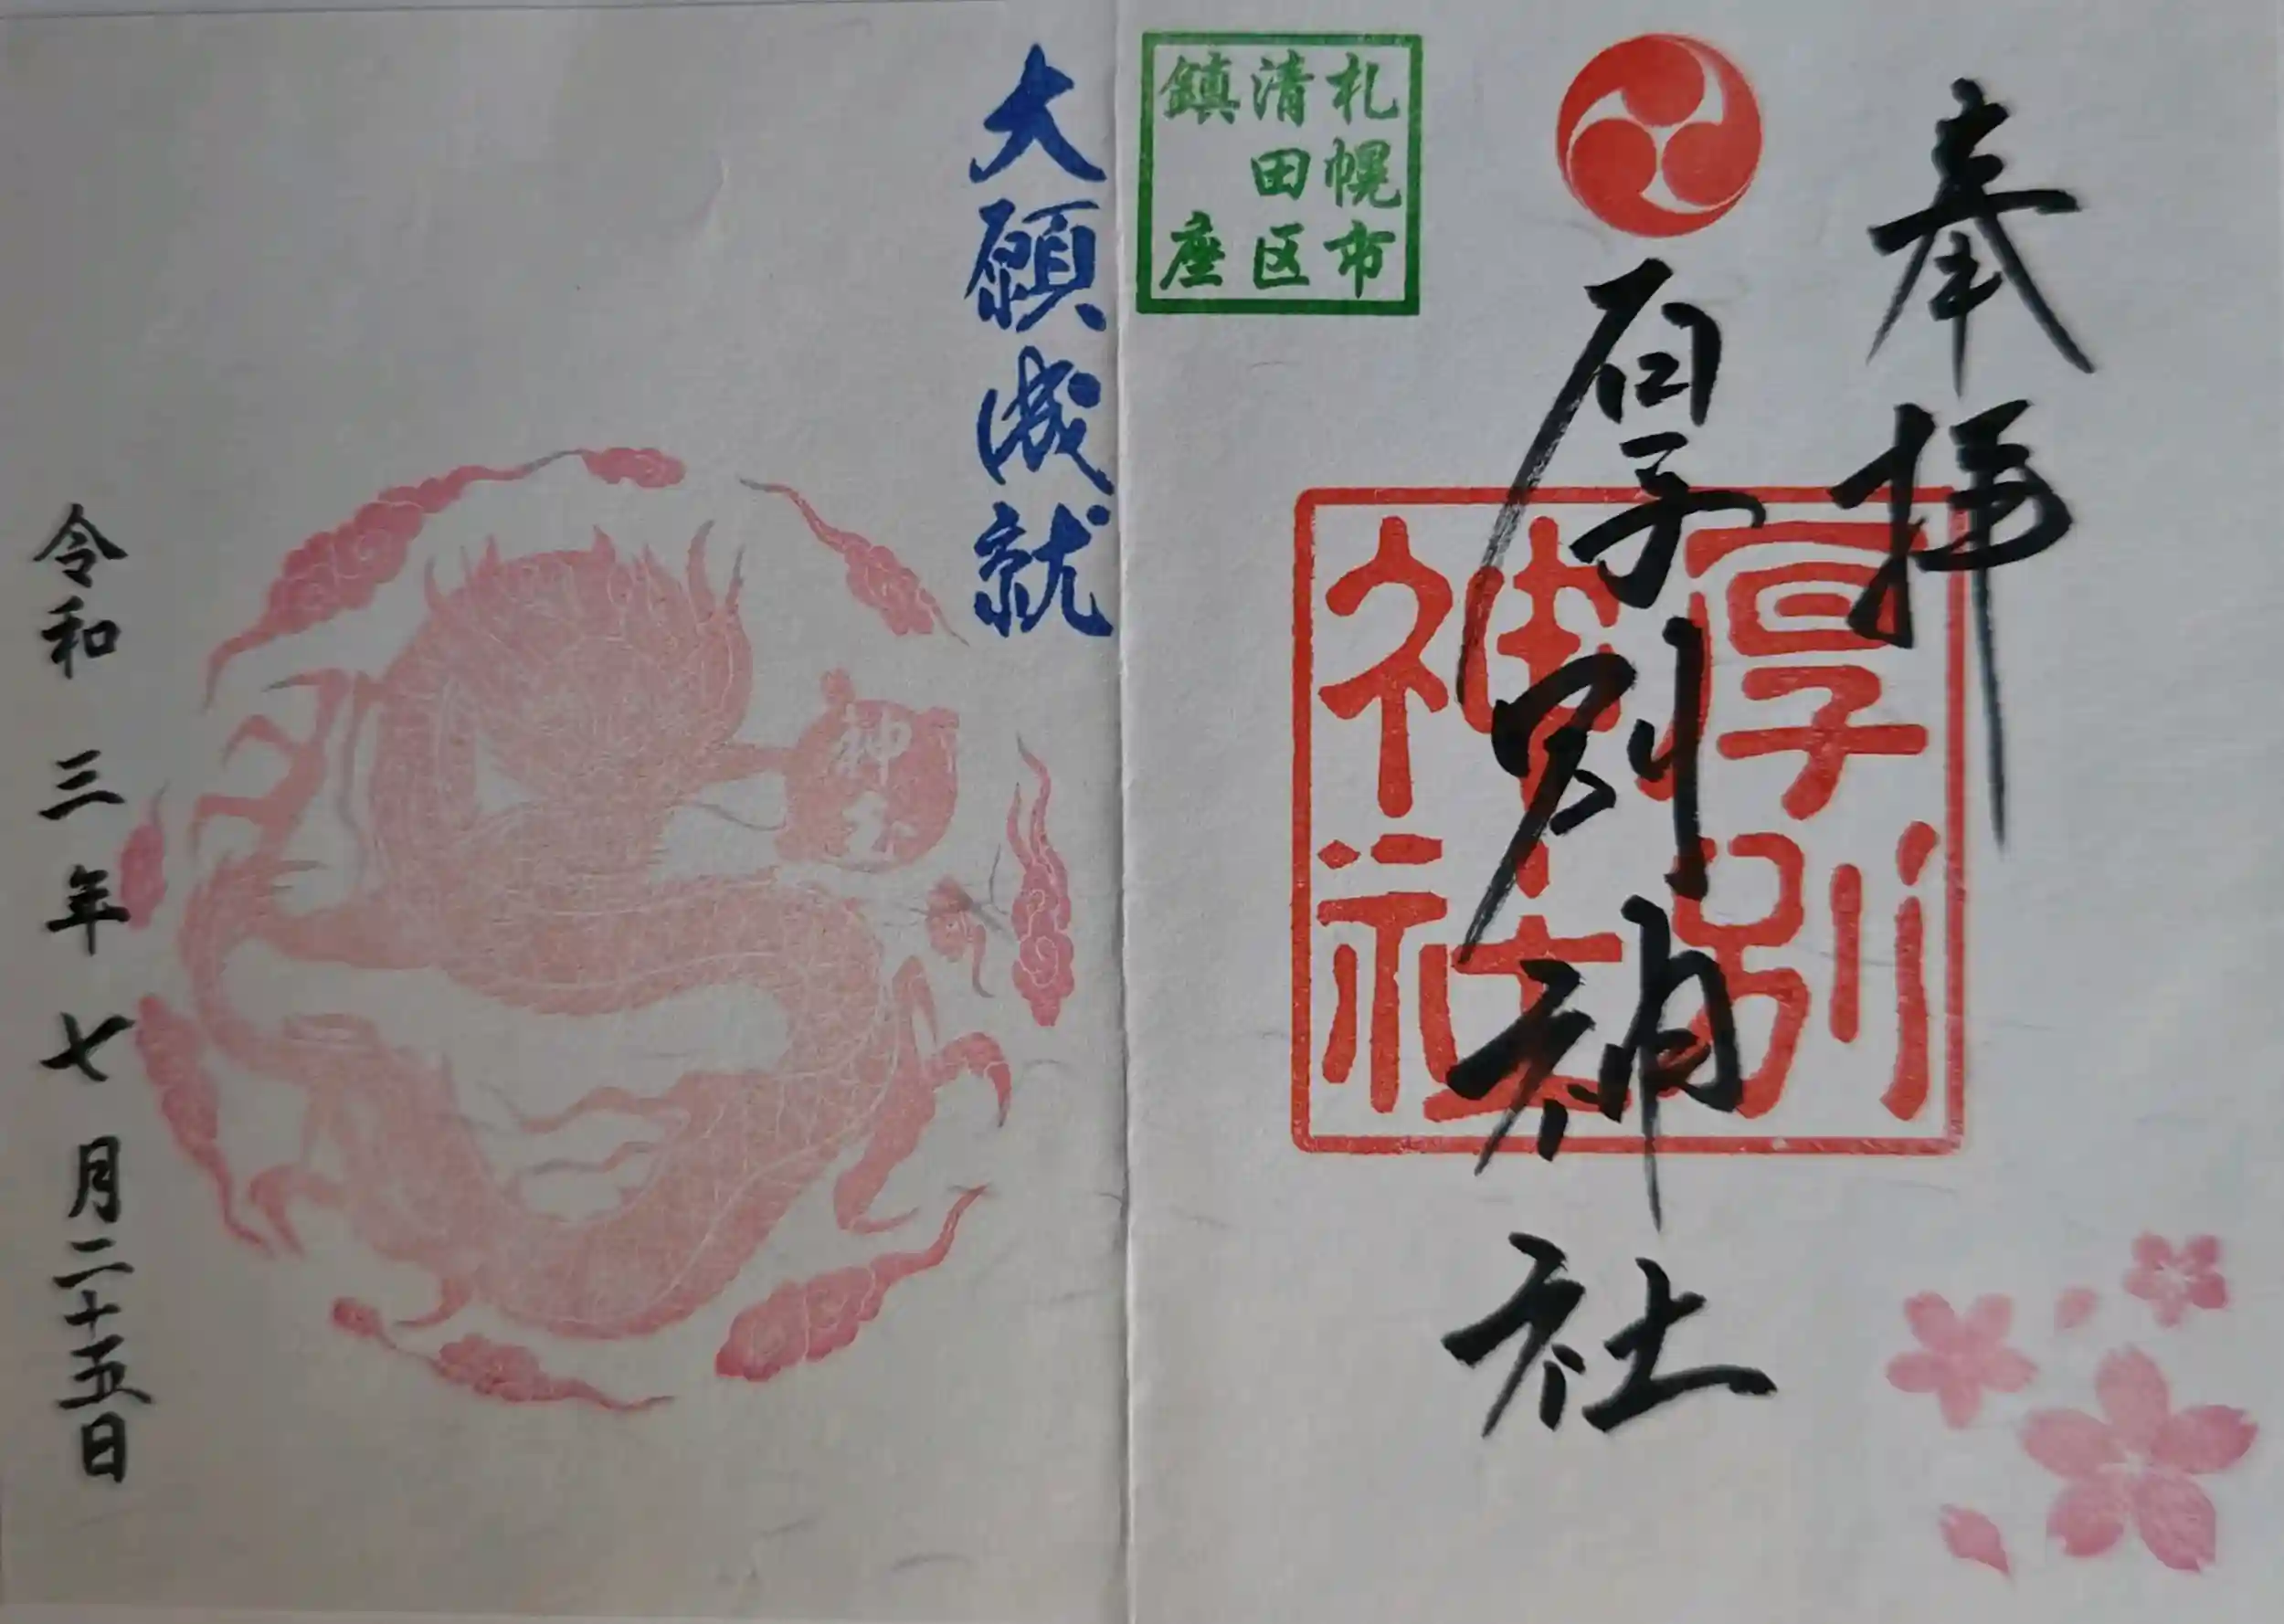 奉拝
厚別神社
厚別
神社
札幌市
清田区
鎮座
大願成就
神玉
令和三年七月二十五日